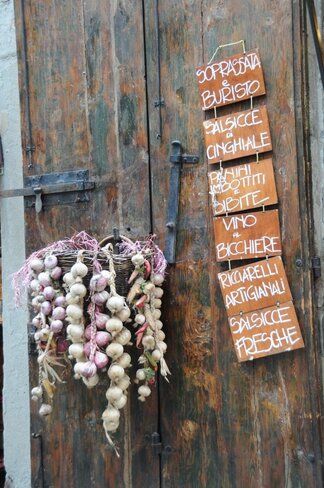 SOPRASSATA
e
BURISTO
SALSICCE
DI
CINGHIALE
PANINI
IMBOTTITI E
BIBITE
VINO
AL
BICCHIERE
RICCIARELLI
ARTIGIANALI
SALSICCE
FRESCHE